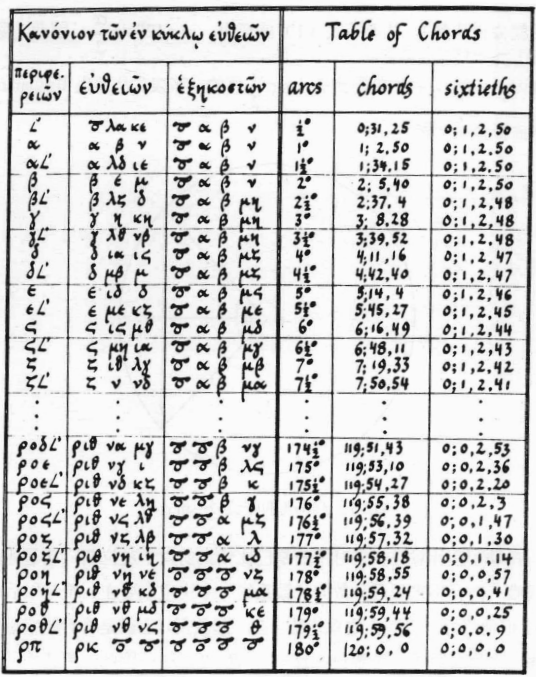 Κανόνιον τῶν ἐν κύκλῳ εὐθειῶν Table of Chords
περιφε- ρειῶν εὐθειῶν ἑξηκοστῶν arcs chords sixtieths
L' ο̄ λα κε ο̄ α β ν ½° 0;31,25 0;1,2,50
α α β ν ο̄ α β ν 1° 1; 2,50 0;1,2,50
αL' α λδ ιε ο̄ α β ν 1½° 1;34,15 0;1,2,50
β β ε μ ο̄ α β ν 2° 2; 5,40 0;1,2,50
βL' β λζ δ ο̄ α β μη 2½° 2;37, 4 0;1,2,48
γ γ η κη ο̄ α β μη 3° 3; 8,28 0;1,2,48
γL' γ λθ νβ ο̄ α β μη 3½° 3;39,52 0;1,2,48
δ δ ια ις ο̄ α β μζ 4° 4;11,16 0;1,2,47
δL' δ μβ μ ο̄ α β μζ 4½° 4;42,40 0;1,2,47
ε ε ιδ δ ο̄ α β μς 5° 5;14, 4 0;1,2,46
εL' ε με κζ ο̄ α β με 5½° 5;45,27 0;1,2,45
ς ς ις μθ ο̄ α β μδ 6° 6;16,49 0;1,2,44
ςL' ς μη ια ο̄ α β μγ 6½° 6;48,11 0;1,2,43
ζ ζ ιθ λγ ο̄ α β μβ 7° 7;19,33 0;1,2,42
ζL' ζ ν νδ ο̄ α β μα 7½° 7;50,54 0;1,2,41
ροδL' ριθ να μγ ο̄ ο̄ β νγ 174½° 119;51,43 0;0,2,53
ροε ριθ νγ ι ο̄ ο̄ β λς 175° 119;53,10 0;0,2,36
ροεL' ριθ νδ κζ ο̄ ο̄ β κ 175½° 119;54,27 0;0,2.20
ρος ριθ νε λη ο̄ ο̄ β γ 176° 119;55,38 0;0,2,3
ροςL' ριθ νς λθ ο̄ ο̄ α μζ 176½° 119;56,39 0;0,1,47
ροζ ριθ νζ λβ ο̄ ο̄ α λ 177° 119;57,32 0;0,1,30
ροζL' ριθ νη ιη ο̄ ο̄ α ιδ 177½° 119;58,18 0;0,1,14
ροη ριθ νη νε ο̄ ο̄ ο̄ νζ 178° 119;58,55 0;0,0,57
ροηL' ριθ νθ κδ ο̄ ο̄ ο̄ μα 178½° 119;59,24 0;0,0,41
ροθ ριθ νθ μδ ο̄ ο̄ ο̄ κε 179° 119;59,44 0;0,0,25
ροθL' ριθ νθ νς ο̄ ο̄ ο̄ θ 179½° 119;59,56 0;0,0.9
ρπ ρκ ο̄ ο̄ ο̄ ο̄ ο̄ ο̄ 180° 120; 0, 0 0;0,0,0